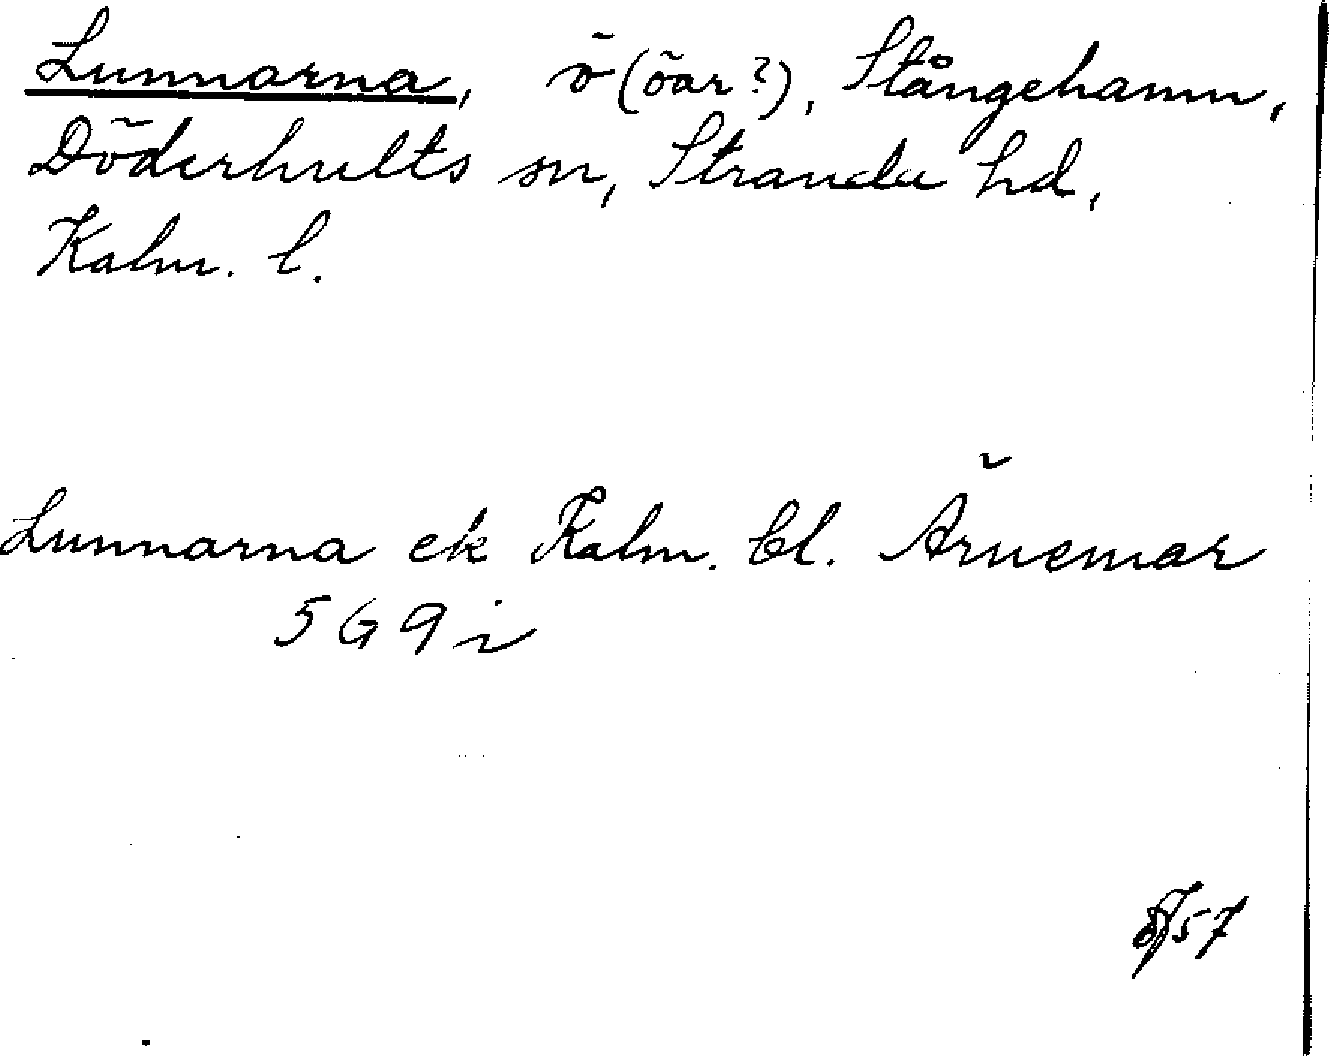 Lunnarna, ö (öar?), Stångehamn,
Döderhults sn, Stranda hd,
Kalm. l.
Lunnarna ek Kalm. bl. Ärnemar
5 G 9 i
57